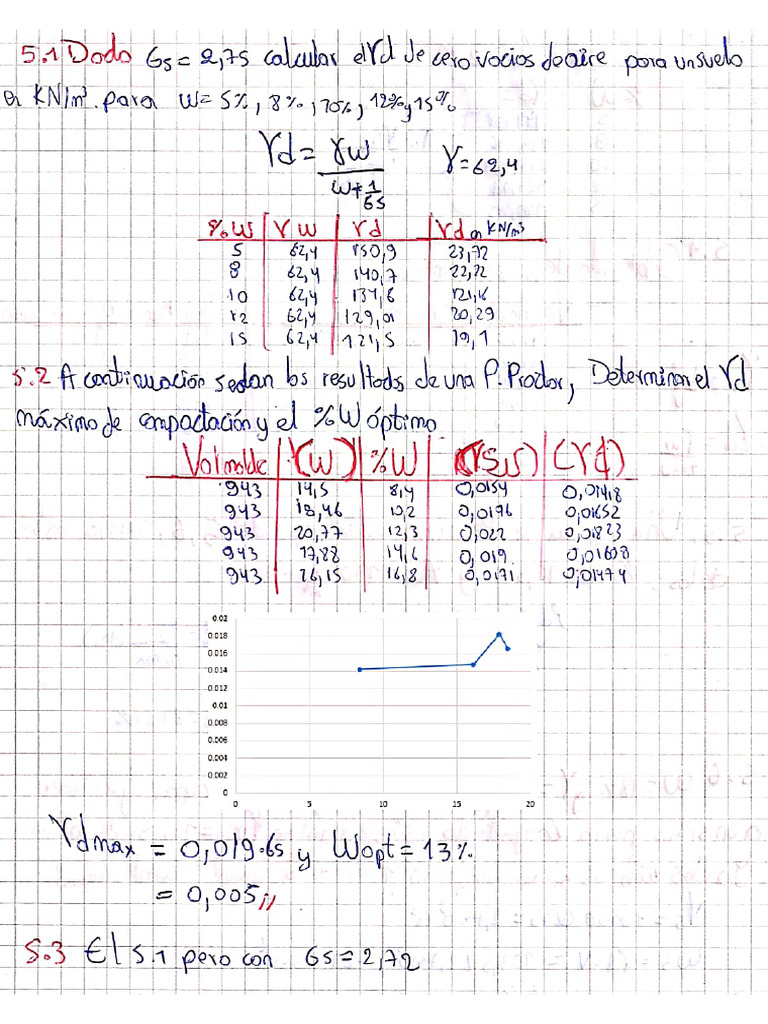 5.1 Dado Gs = 2,75 calcular el γd de cero vacios de aire para un suelo
en KN/m³. para W= 5%, 8%, 10%, 12% y 15%
γd = γw / (w + 1/Gs)   γ = 62,4
%W | γw | γd | γd en KN/m³
5 62,4 150,9 23,72
8 62,4 140,7 22,22
10 62,4 134,6 21,16
12 62,4 129,01 20,29
15 62,4 121,5 19,1
5.2 A continuación se dan los resultados de una P. Proctor, Determinar el γd
máximo de compactación y el %W óptimo
Vol molde | (W) | %W | (γ) | (γd)
943 14,5 8,4 0,0154 0,01418
943 18,46 10,2 0,0176 0,01652
943 20,77 12,3 0,022 0,01823
943 17,88 14,6 0,019 0,01608
943 16,15 16,8 0,0171 0,01474
0.02
0.018
0.016
0.014
0.012
0.01
0.008
0.006
0.004
0.002
0
0 5 10 15 20
γdmax = 0,019.Gs y Wopt = 13%
= 0,005,,
5.3 El 5.1 pero con Gs = 2,72